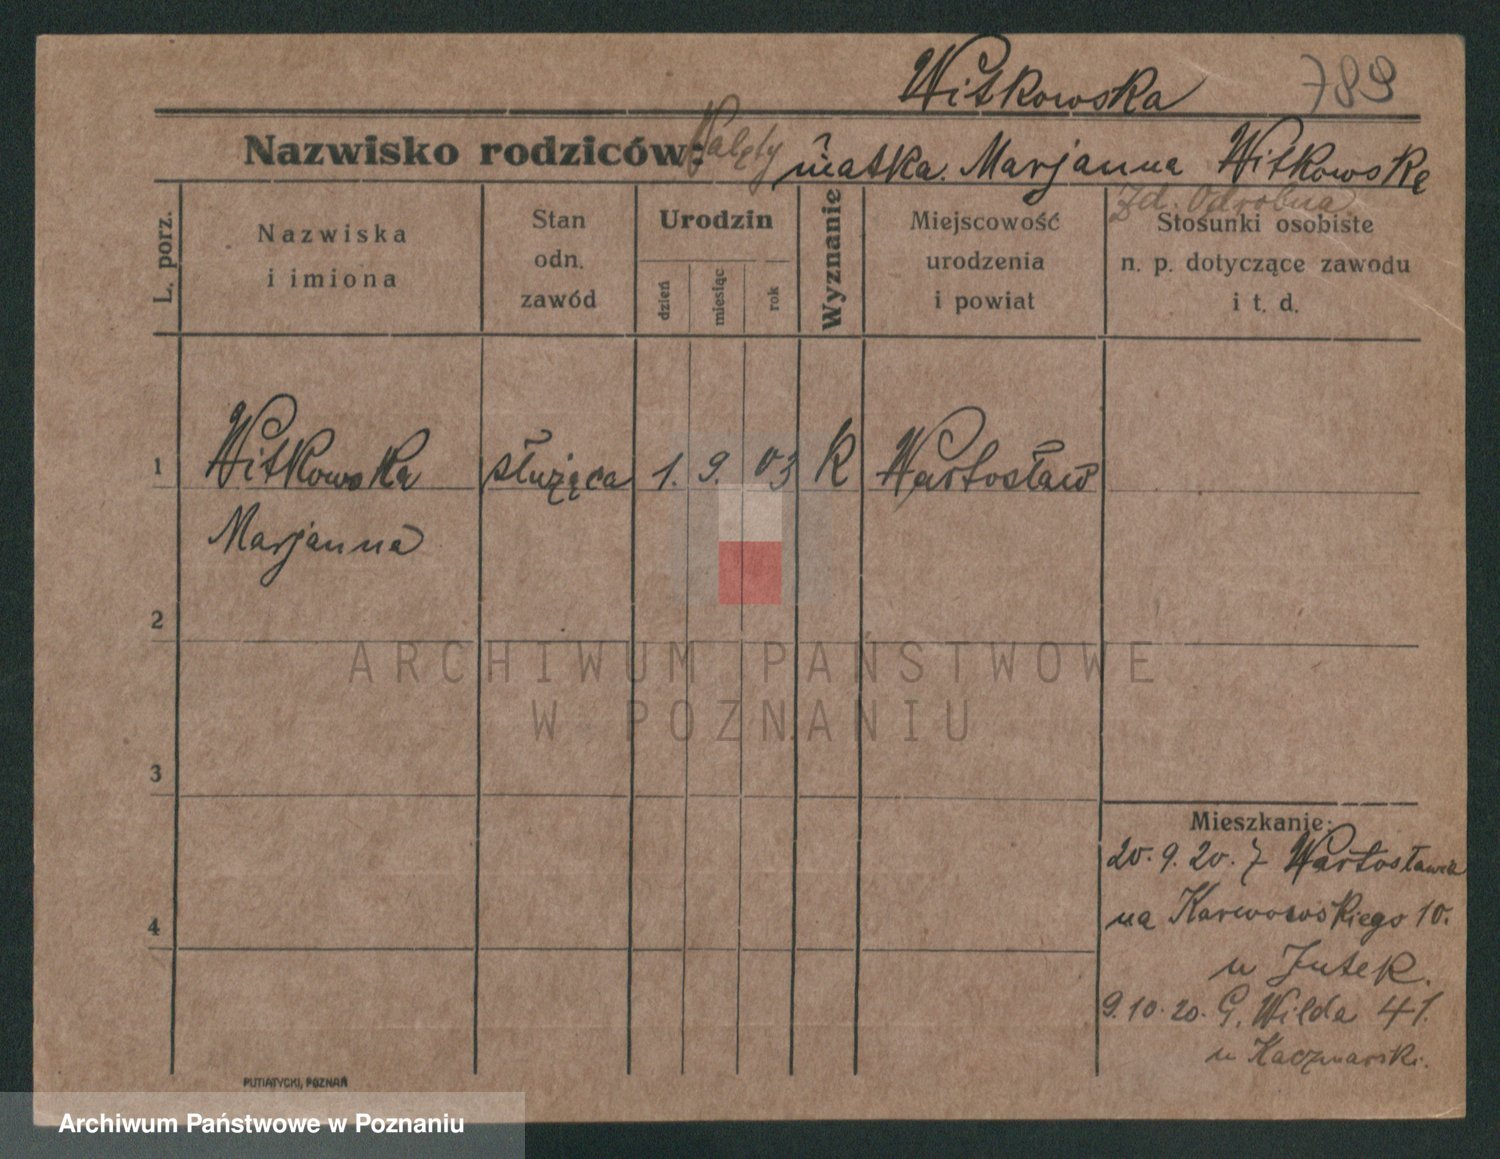 Witkowska 789
Nazwisko rodziców: Walęty matka. Marjanna Witkowska
zd. Odrobna
L. porz.
Nazwiska
i imiona
Stan
odn.
zawód
Urodzin
dzień
miesiąc
rok
Wyznanie
Miejscowość
urodzenia
i powiat
Stosunki osobiste
n. p. dotyczące zawodu
i t. d.
1 Witkowska służąca 1. 9. 03 K Wartosław
Marjanna
2
ARCHIWUM PAŃSTWOWE
W POZNANIU
3
4
Mieszkanie:
20. 9. 20. z Wartosławia
na Karwowskiego 10.
u Jutek.
9. 10. 20. G. Wilda 41.
u Kaczmarski.
PUTIATYCKI, POZNAŃ
Archiwum Państwowe w Poznaniu